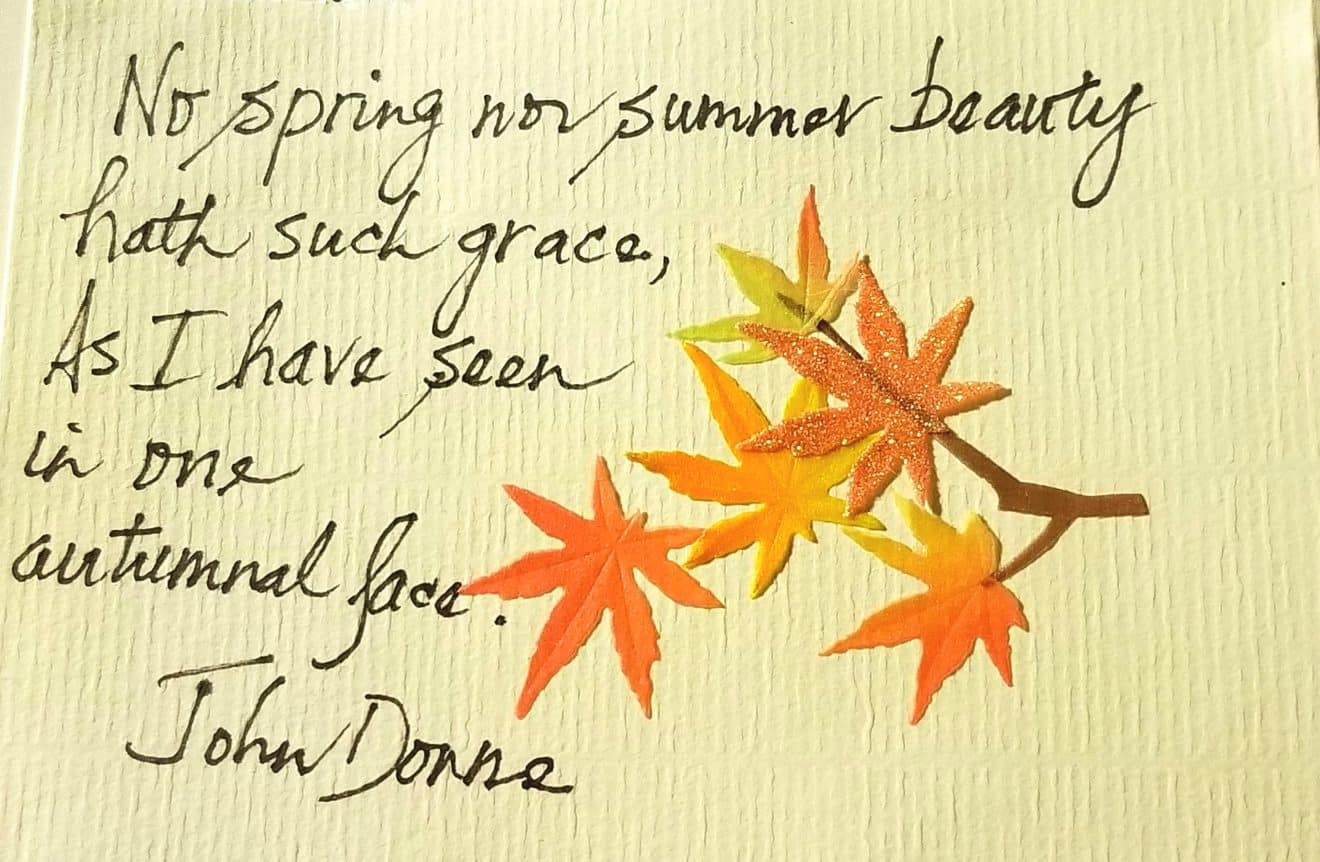 No spring nor summer beauty
hath such grace,
As I have seen
in one
autumnal face.
John Donne